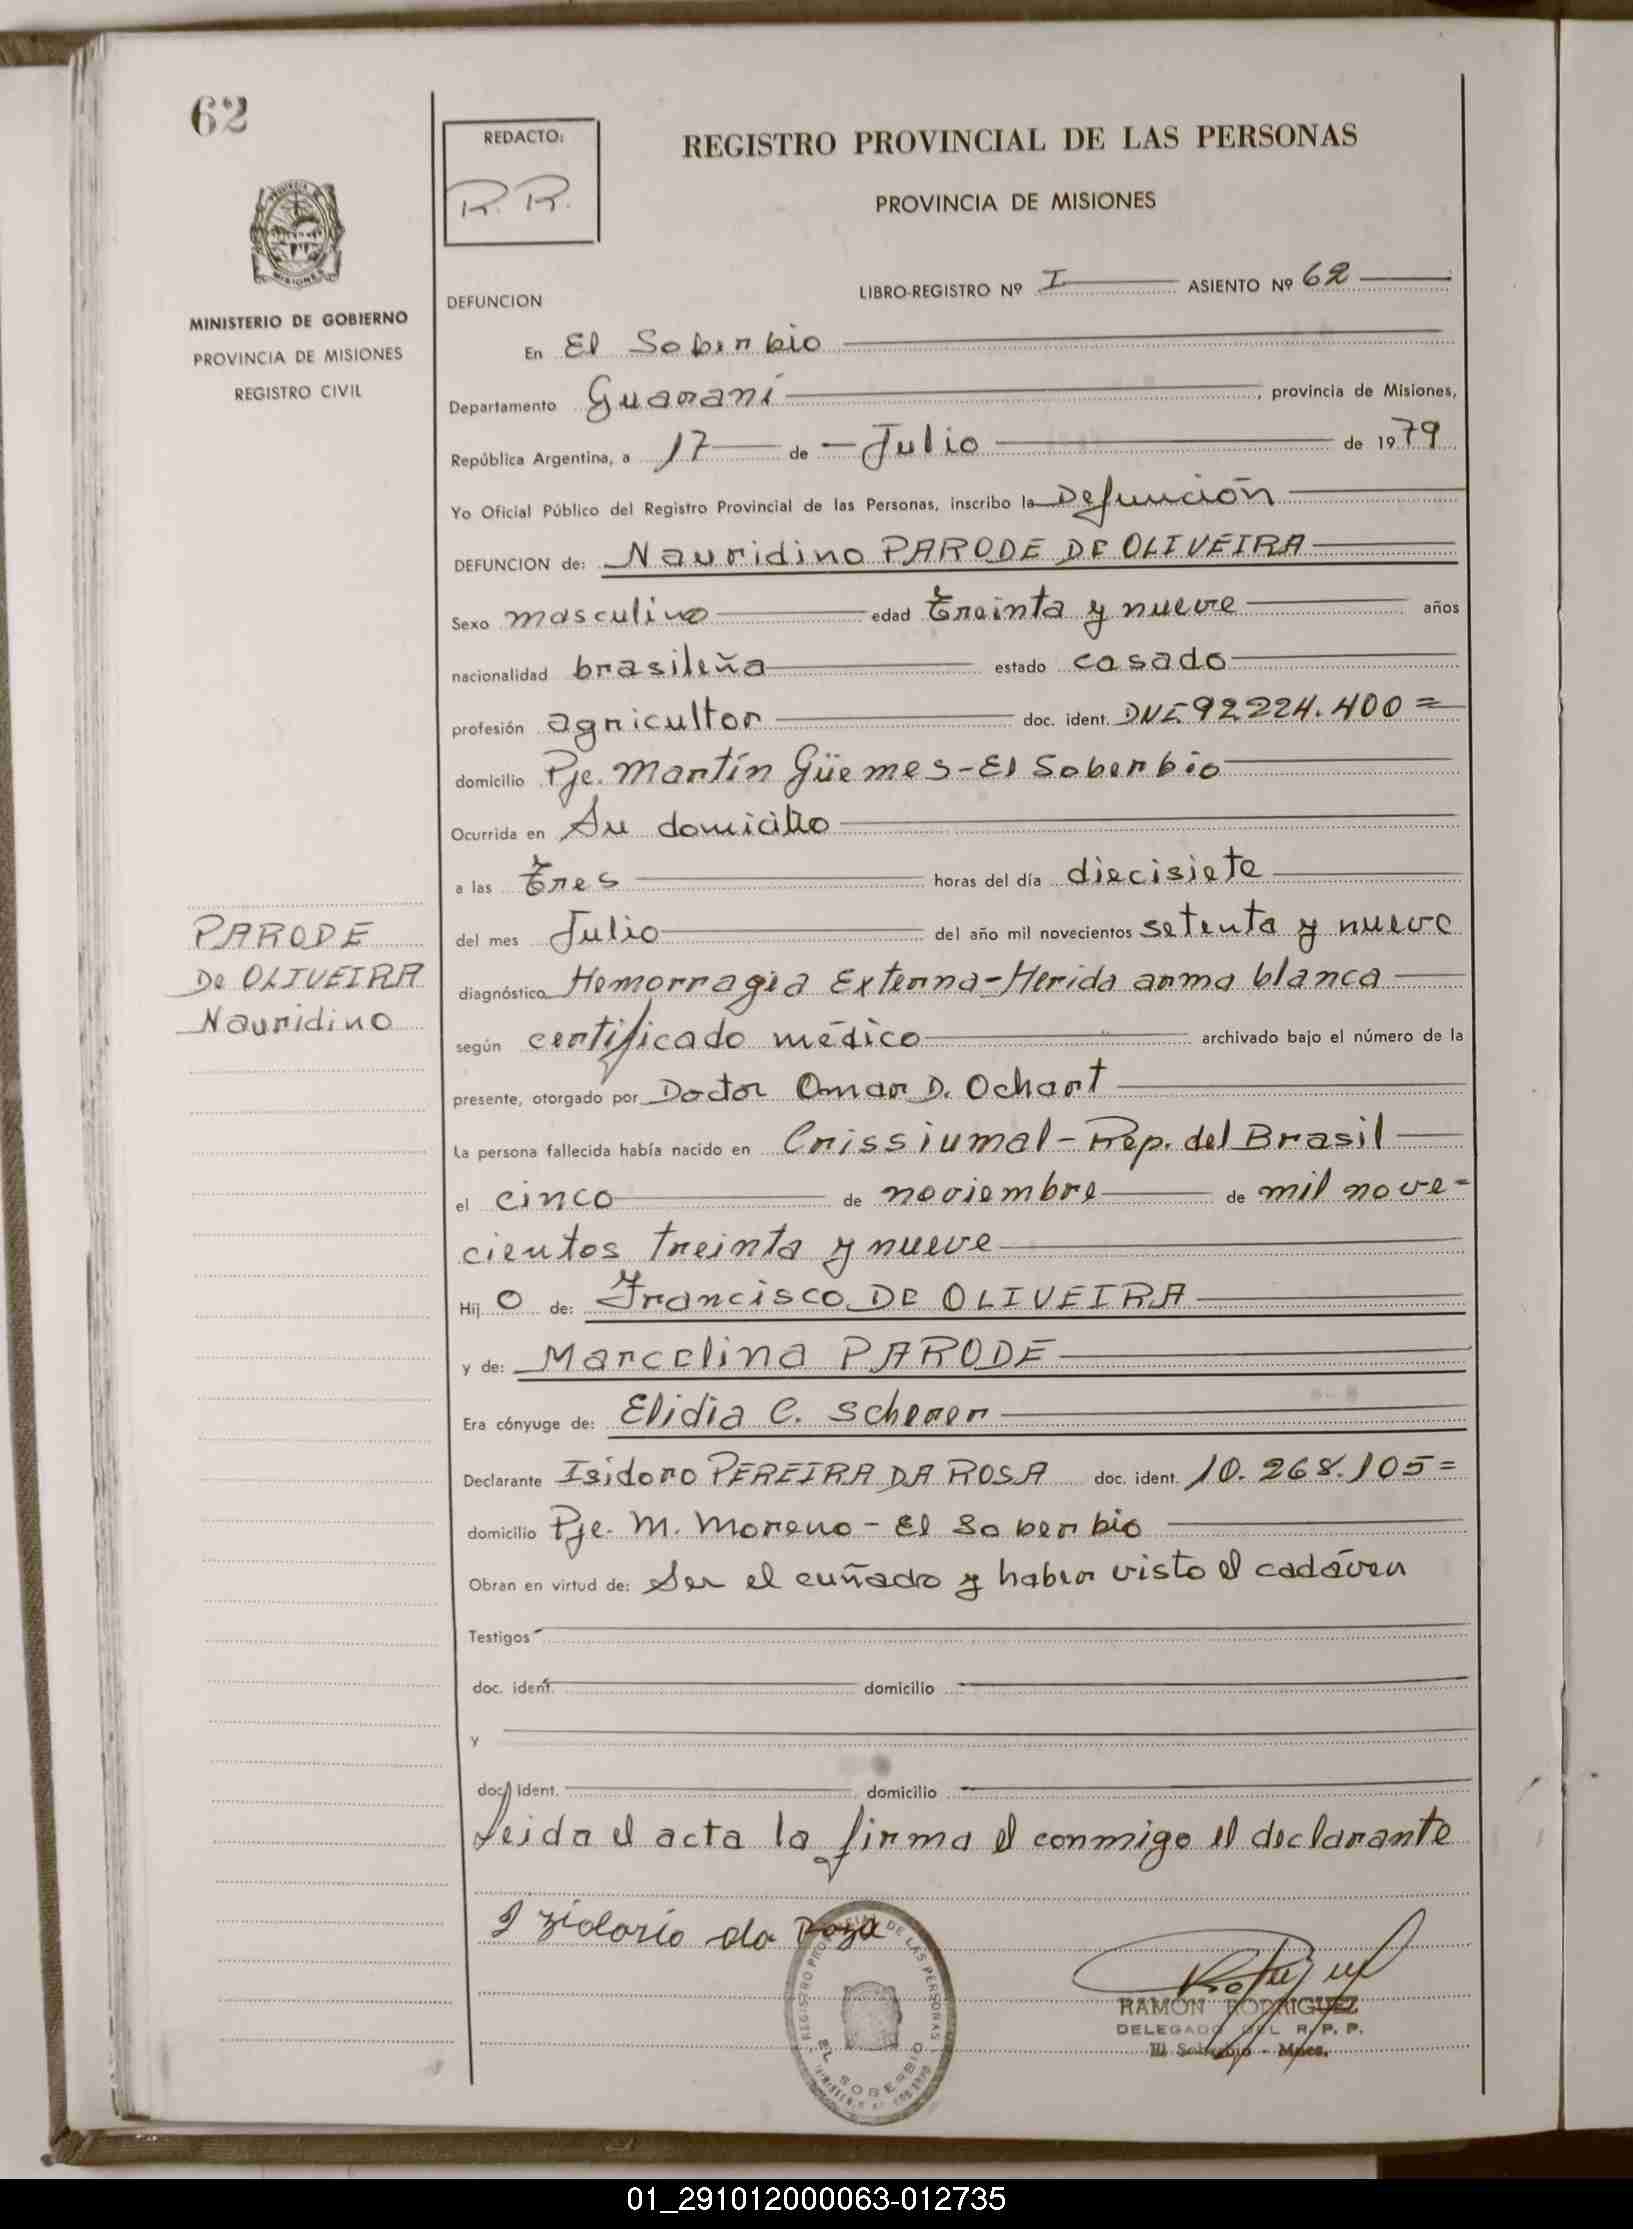 62
REDACTO:
R. R.
REGISTRO PROVINCIAL DE LAS PERSONAS
PROVINCIA DE MISIONES
MISIONES
MINISTERIO DE GOBIERNO
PROVINCIA DE MISIONES
REGISTRO CIVIL
DEFUNCION
LIBRO-REGISTRO Nº I ASIENTO Nº 62
En El Soberbio
Departamento Guaraní, provincia de Misiones,
República Argentina, a 17 de Julio de 1979
Yo Oficial Público del Registro Provincial de las Personas, inscribo la Defunción
DEFUNCION de: Nauridino PARODE DE OLIVEIRA
Sexo masculino edad treinta y nueve años
nacionalidad brasileña estado casado
profesión agricultor doc. ident. DNE 92224.400=
domicilio Pje. Martín Güemes-El Soberbio
Ocurrida en Su domicilio
a las tres horas del día diecisiete
del mes Julio del año mil novecientos setenta y nueve
diagnóstico Hemorragia Externa-Herida arma blanca
según certificado médico archivado bajo el número de la
presente, otorgado por Doctor Omar D. Ochart
La persona fallecida había nacido en Crissiumal-Rep. del Brasil
el cinco de noviembre de mil nove=
cientos treinta y nueve
Hij O de: Francisco DE OLIVEIRA
y de: Marcelina PARODE
Era cónyuge de: Elidia C. Scherer
Declarante Isidoro PEREIRA DA ROSA doc. ident. 10.268.105=
domicilio Pje. M. Moreno - El Soberbio
Obran en virtud de: Ser el cuñado y haber visto el cadáver
Testigos
doc. ident. domicilio
y
doc. ident. domicilio
Leida el acta la firma el conmigo el declarante
PARODE
De OLIVEIRA
Nauridino
Izidorio da Roza
REGISTRO PROVINCIAL DE LAS PERSONAS
EL SOBERBIO
RAMON RODRIGUEZ
DELEGADO DEL R. P. P.
El Soberbio - Mnes.
01_291012000063-012735